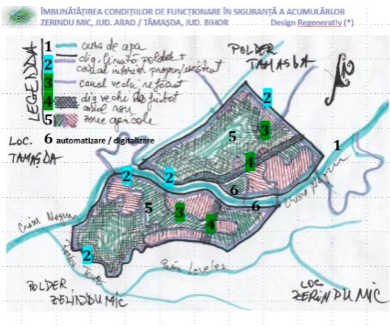 ÎMBUNĂTĂȚIREA CONDIȚIILOR DE FUNCȚIONARE ÎN SIGURANȚĂ A ACUMULĂRILOR
ZERINDU MIC, JUD. ARAD / TĂMAȘDA, JUD. BIHOR
Design Regenerativ (*)
LEGENDA
1 curs de apa
2 dig, limita, polder +
canal interior propus/existent
3 canal vechi refacut
4 dig vechi
canal nou
5 zone agricole
6 automatizare / digitalizare
POLDER
TAMASDA
LOC.
TAMAȘDA
2
3
5
1
4
2
2
6
6
5
3
4
2
Crisul Negru
Crisul Negru
POLDER
ZERINDU MIC
LOC.
ZERINDU MIC